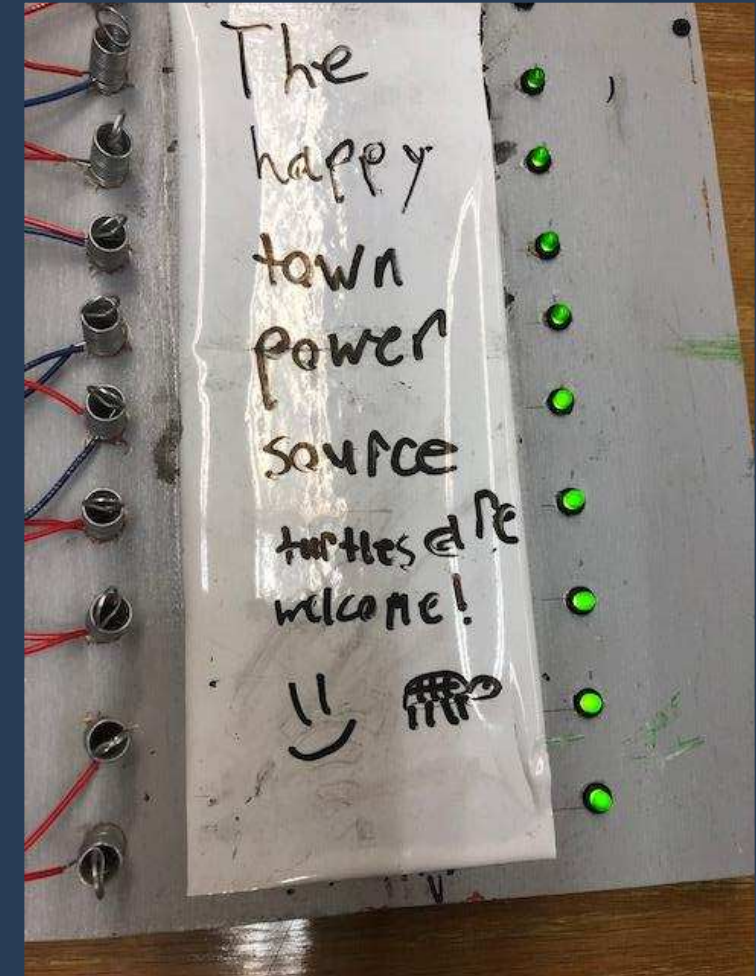 The
happy
town
power
source
turtles are
welcome!